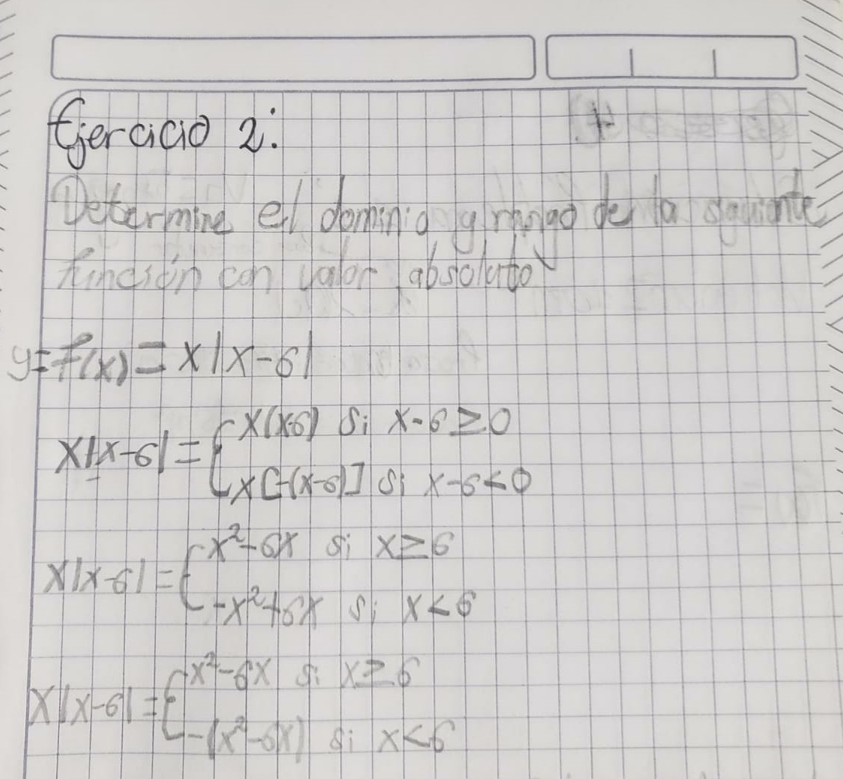 Ejercicio 2:
Determine el dominio y rango de la siguiente
función con valor absoluto
y=f(x)= x|x-6|
x|x-6|={x(x-6) si x-6≥0
x[-(x-6)] si x-6<0
x|x-6|={x²-6x si x≥6
-x²+6x si x<6
x|x-6|={x²-6x si x≥6
-(x²-6x) si x<6